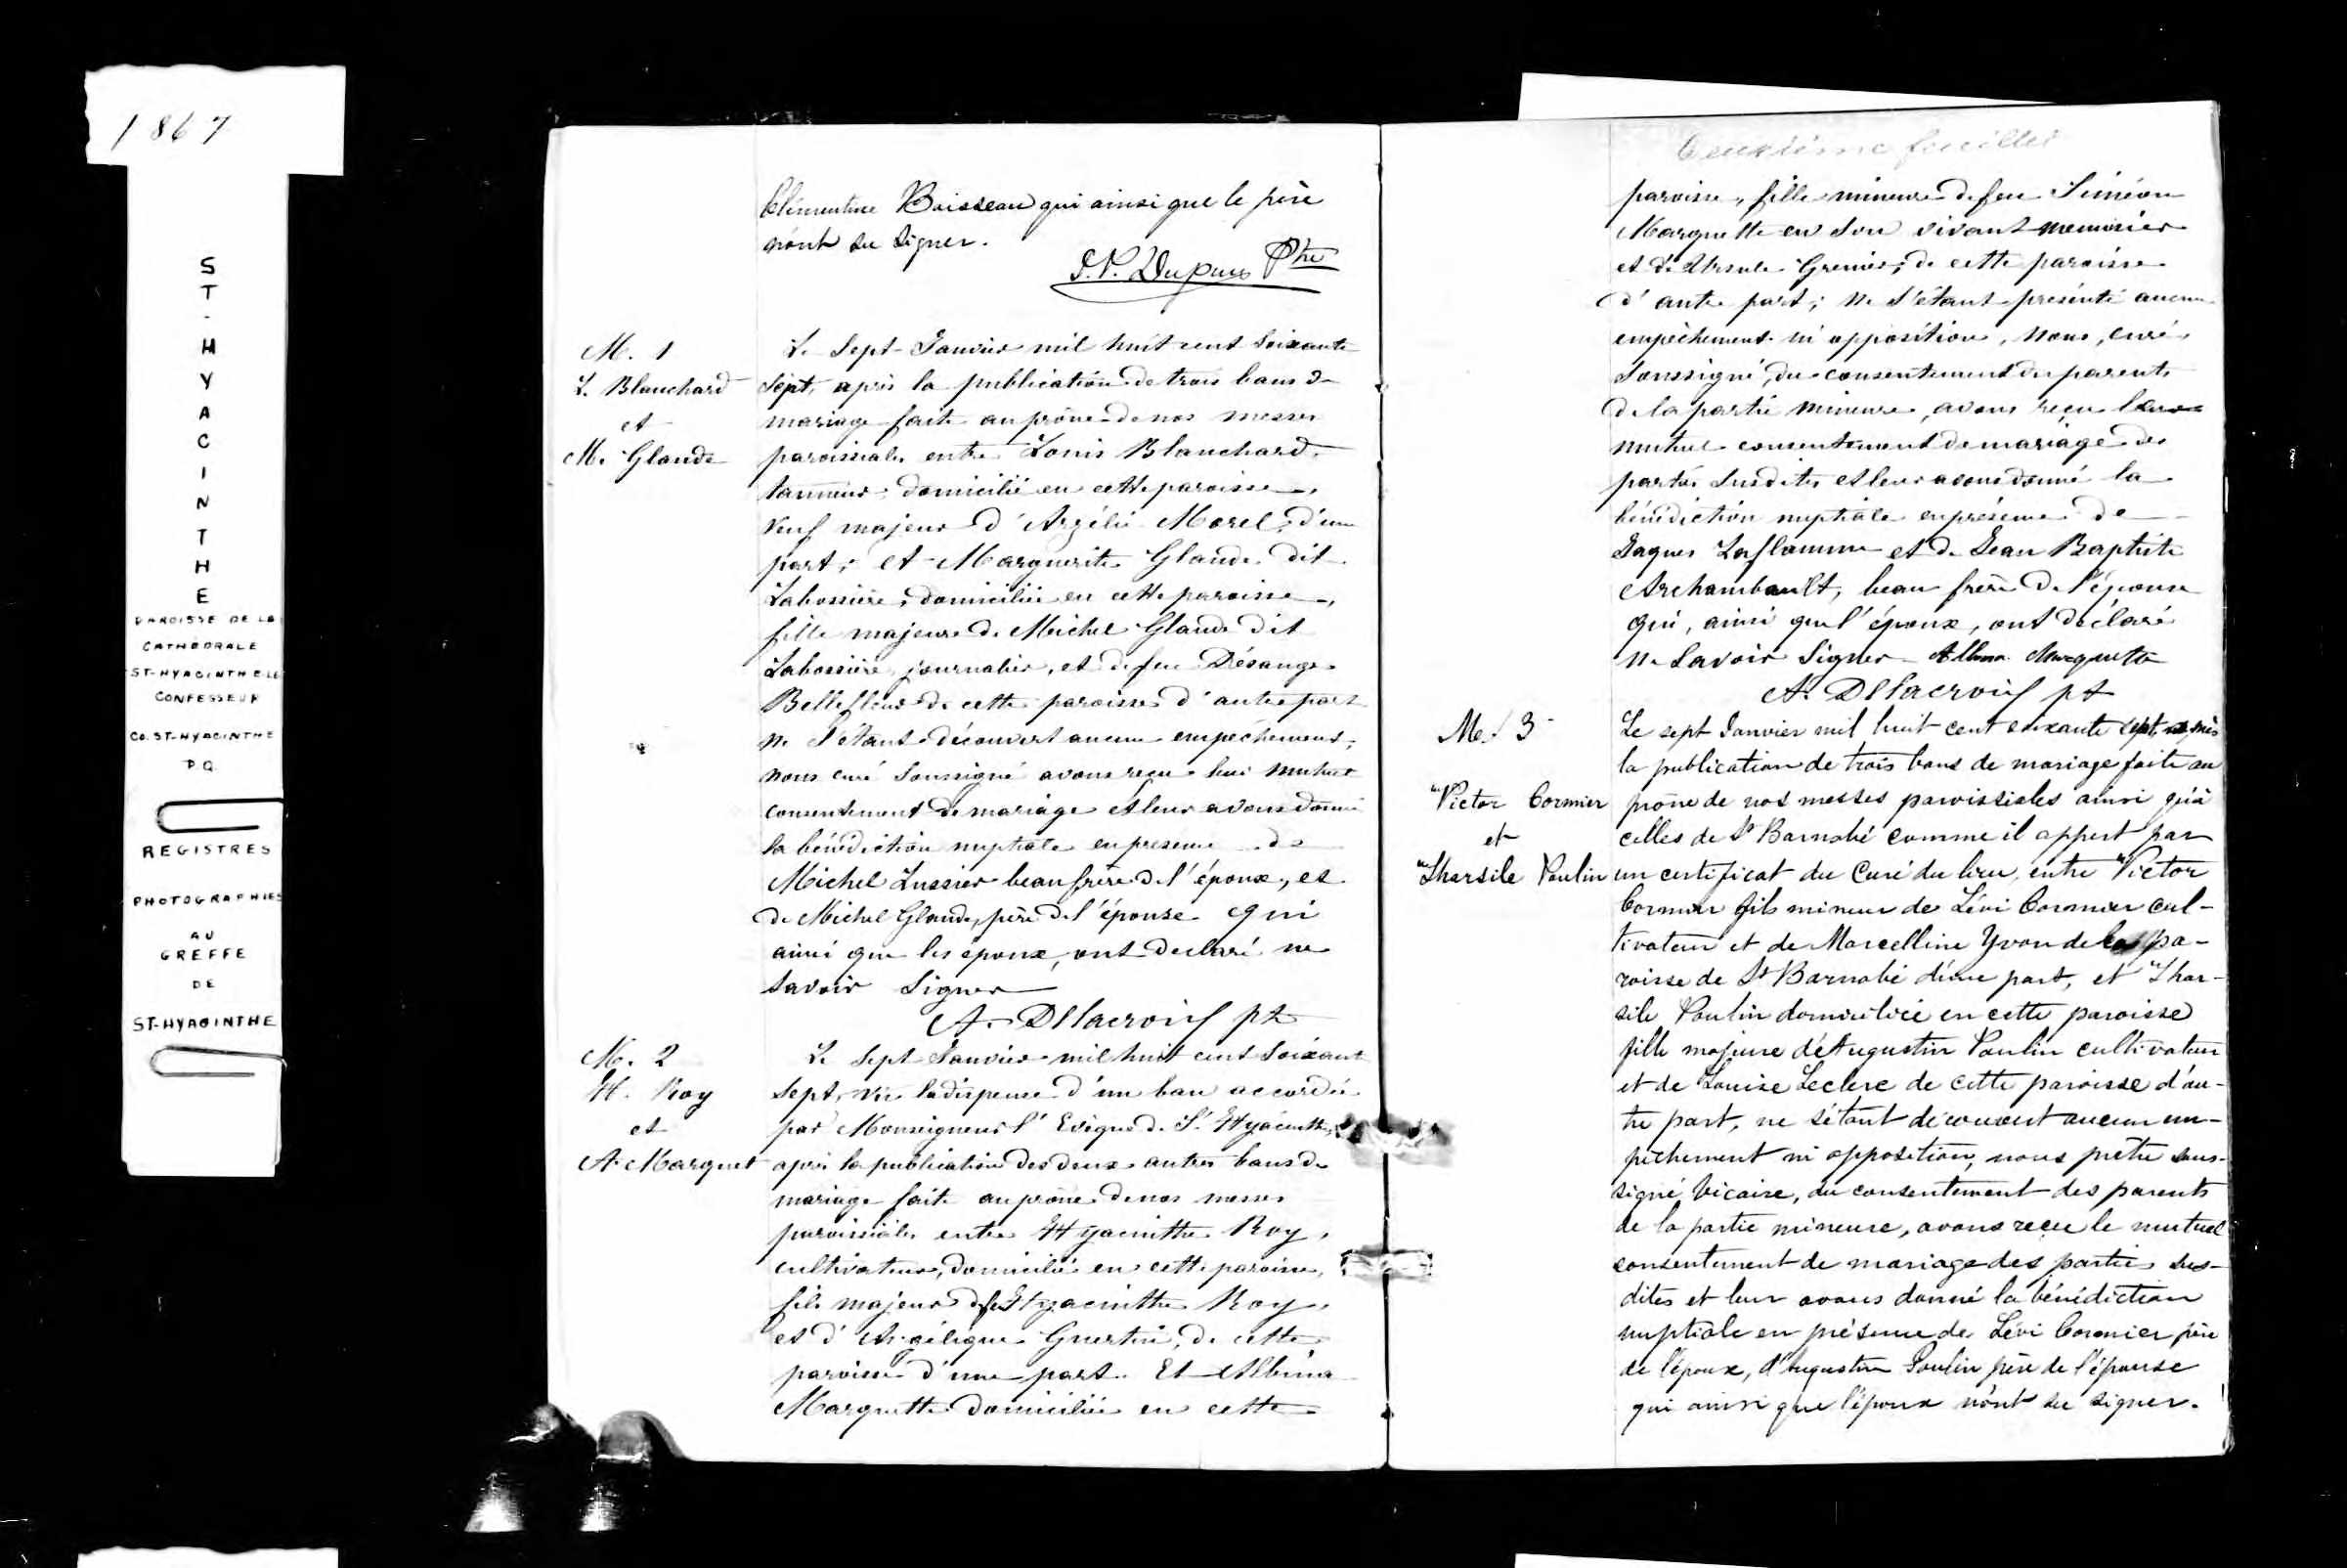 1867
ST-HYACINTHE
PAROISSE DE LA
CATHÉDRALE
ST-HYACINTHE-LE
CONFESSEUR
CO. ST-HYACINTHE
P.Q.
REGISTRES
PHOTOGRAPHIES
AU
GREFFE
DE
ST-HYACINTHE
Clémentine Boisseau qui ainsi que le père
n'ont su signer.
Ptre
M. 1
L. Blanchard
et
M. Glaude
Le Sept Janvier mil huit cent soixante
sept, après la publication de trois bans de
mariage faite au prône de nos messes
paroissiales entre Louis Blanchard,
tanneur domicilié en cette paroisse,
veuf majeur d'Azélie Morel, d'une
part; et Marguerite Glaude dit
Labossière, domiciliée en cette paroisse,
fille majeure de Michel Glaude dit
Labossière journalier, et de feu Désange
Bellefleur de cette paroisse d'autre part
ne s'étant découvert aucun empêchement,
nous curé soussigné avons reçu leur mutuel
consentement de mariage et leur avons donné
la bénédiction nuptiale en présence de
Michel Lussier beau frère de l'époux, et
de Michel Glaude, père de l'épouse qui
ainsi que les époux, ont déclaré ne
savoir signer
A. Dllacroix pt
M. 2
H. Roy
et
A. Marquet
Le Sept Janvier mil huit cent soixante
sept, vu la dispense d'un ban accordée
par Monseigneur l'Evêque de St Hyacinthe,
après la publication des deux autres bans de
mariage faite au prône de nos messes
paroissiales entre Hyacinthe Roy,
cultivateur, domicilié en cette paroisse,
fils majeur de feu Hyacinthe Roy,
et d'Angélique Guertin, de cette
paroisse d'une part. Et Albina
Marquette domiciliée en cette
Deuxième feuillet
paroisse, fille mineure de feu Siméon
Marquette en son vivant menuisier
et de Ursule Grenier, de cette paroisse
d'autre part; ne s'étant présenté aucun
empêchement ni opposition, nous, curé
soussigné, du consentement du parents
de la partie mineure, avons reçu
mutuel consentement de mariage des
parties susdites et leur avons donné la
bénédiction nuptiale en présence de
Jaques Laflamme et de Jean Baptiste
Archambault, beau frère de l'épouse
qui, ainsi que l'époux, ont déclaré
ne savoir signer Albina Marquette
A. Dllacroix pt
M. 3
Victor Cormier
et
Tharsile Poulin
Le sept Janvier mil huit cent soixante sept, après
la publication de trois bans de mariage faite au
prône de nos messes paroissiales ainsi qu'à
celles de St Barnabé comme il appert par
un certificat du Curé du lieu, entre Victor
Cormier fils mineur de Lévi Cormier cul-
tivateur et de Marcelline Yvon de la pa-
roisse de St Barnabé d'une part, et Thar-
sile Poulin domiciliée en cette paroisse
fille majeure d'Augustin Poulin cultivateur
et de Louise Leclerc de cette paroisse d'au-
tre part, ne s'étant découvert aucun em-
pêchement ni opposition, nous prêtre sous-
signé Vicaire, du consentement des parents
de la partie mineure, avons reçu le mutuel
consentement de mariage des parties sus-
dites et leur avons donné la bénédiction
nuptiale en présence de Lévi Cormier père
de l'époux, d'Augustin Poulin père de l'épouse
qui ainsi que l'époux n'ont su signer.